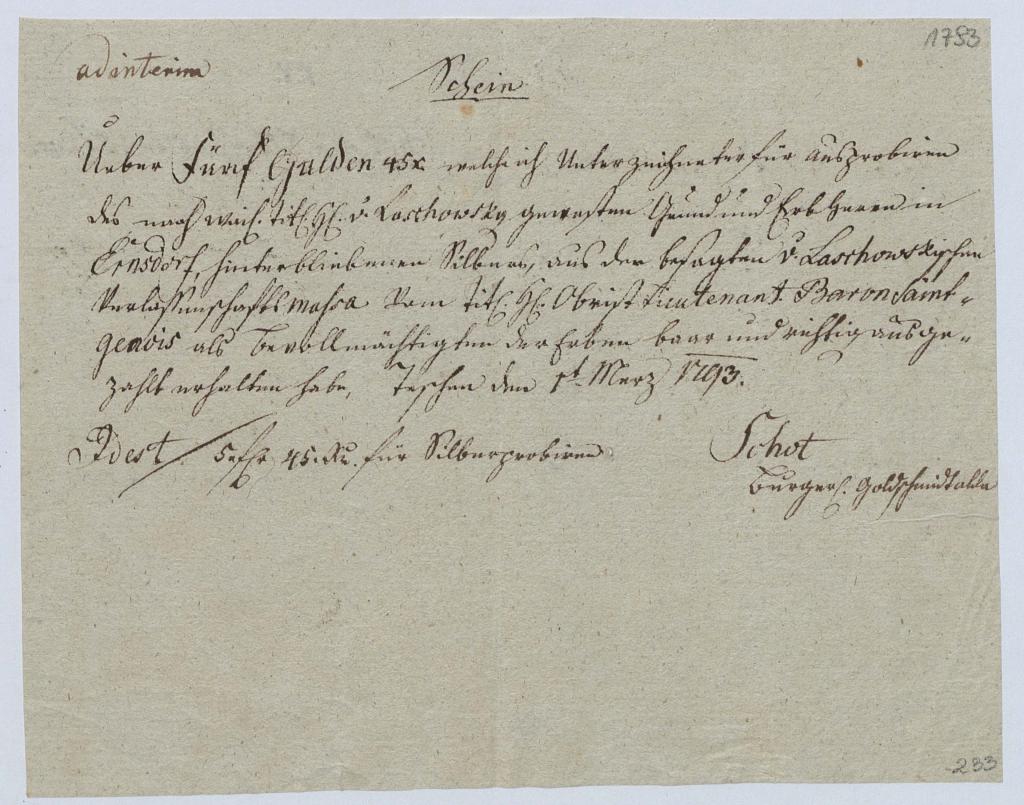 1793
ad interim
Schein
Ueber Fünf Gulden 45x welche ich Unterzeichneter für Ausprobiren
des nach weil. Titl. H. v. Laschowsky gewesten Grund und Erbherrn in
Ernsdorf, hinterbliebenen Silbers, aus der besagten v. Laschowskischen
Verlassenschaftsmassa vom Titl. H. Obrist Lieutenant Baron Saint-
genois als bevollmächtigten der Erben baar und richtig ausge-
zahlt erhalten habe, Teschen den 1t. Merz 1793.
Idest / 5 fr 45 Xr. für Silberprobiren
Schot
burgerl. Goldschmidt
233